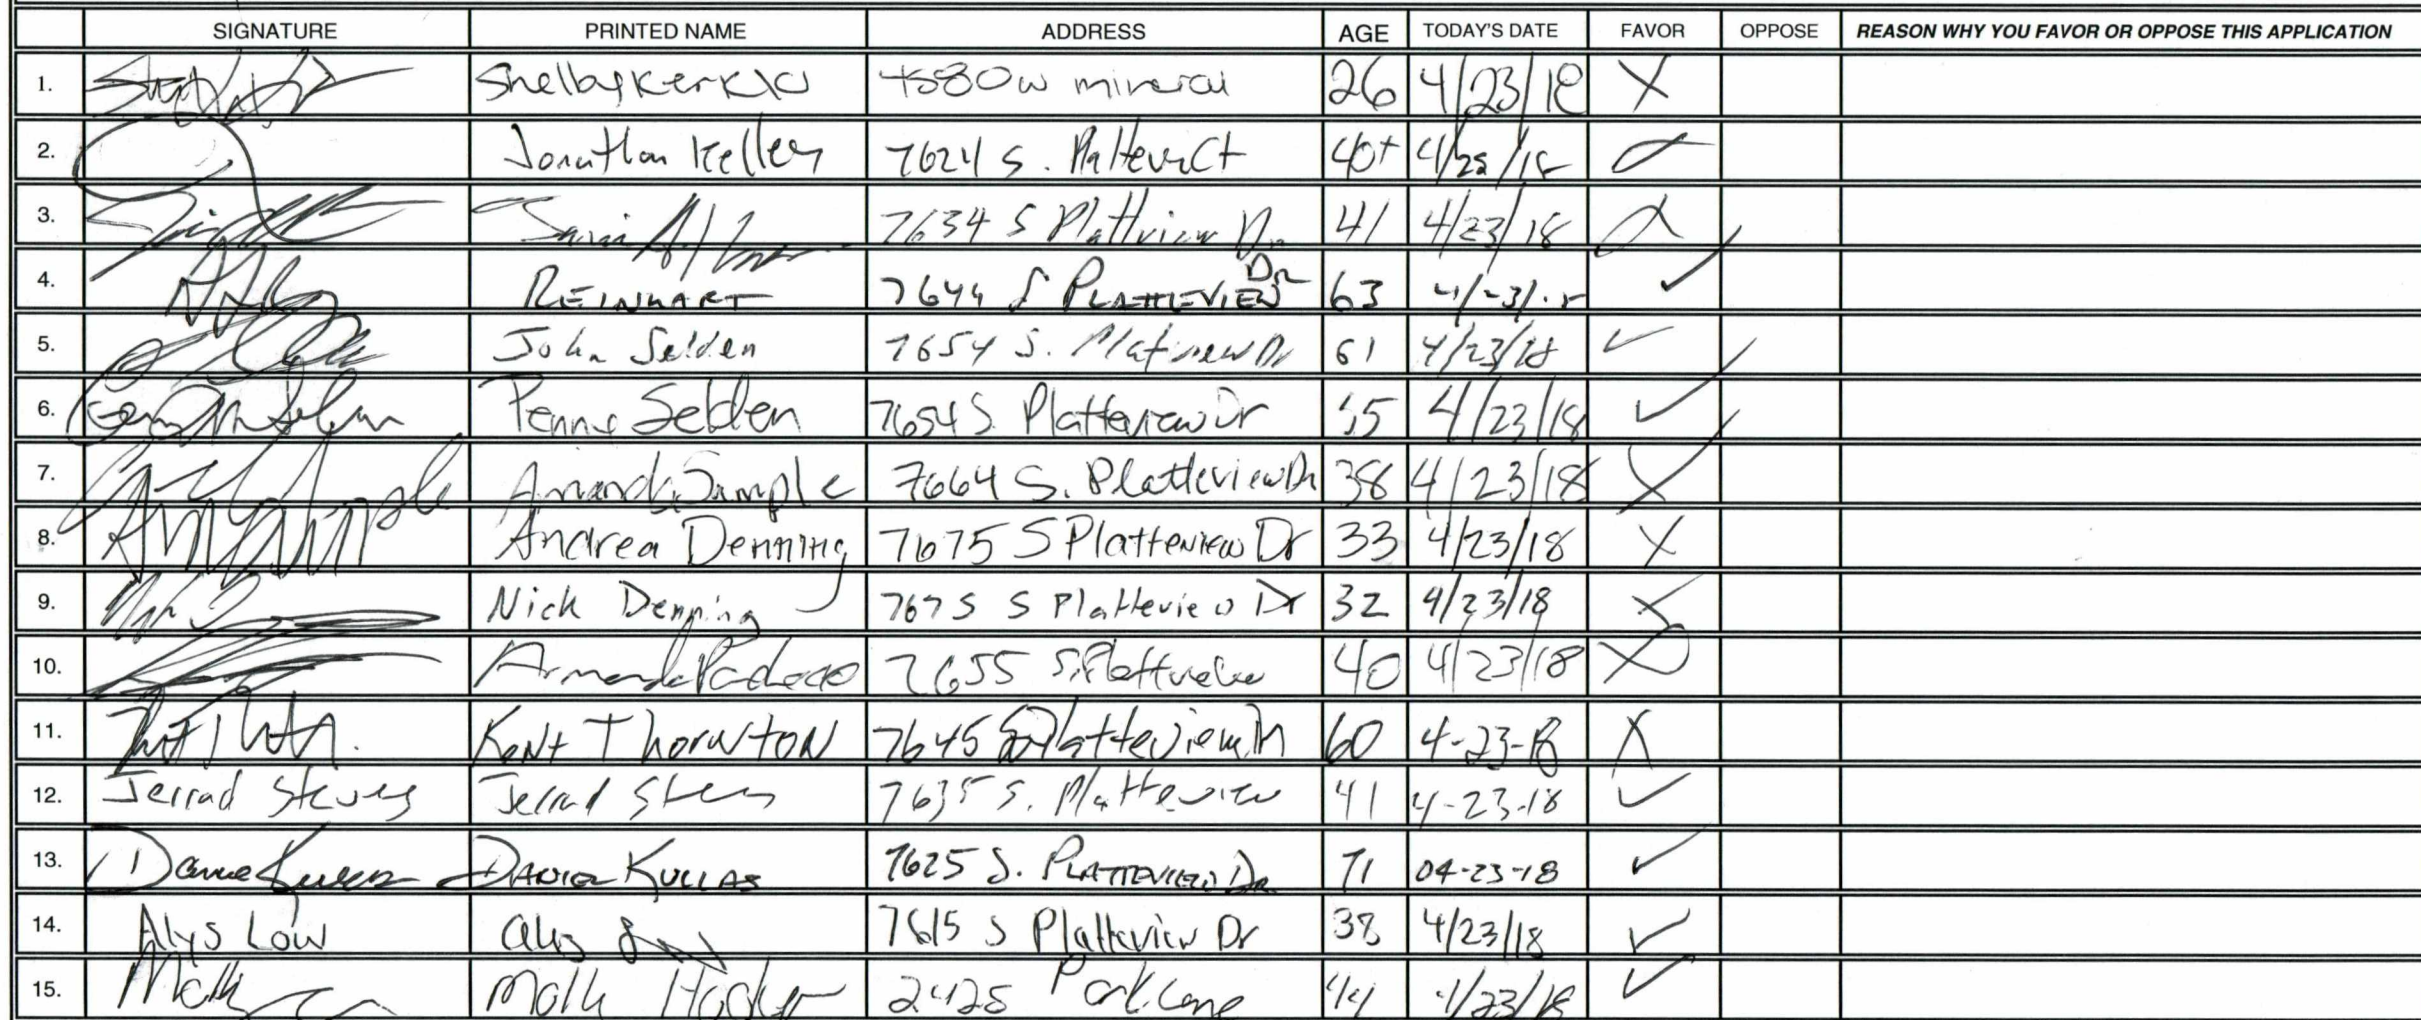 SIGNATURE PRINTED NAME ADDRESS AGE TODAY'S DATE FAVOR OPPOSE REASON WHY YOU FAVOR OR OPPOSE THIS APPLICATION
1. Shelby 4580 w mineral 26 4/23/18 X
2. Jonathan Kelley 7624 S. Ct 40+
3. 7634 S Plattview Dr 41 4/23/18
4. REINHART 7644 S PLATTEVIEW Dr 63 ✓
5. John Selden 7654 S. Platview Dr 61 4/23/18 ✓
6. Penny Selden 7654 S. Platteview Dr 55 4/23/18 ✓
7. Amanda Sample 7664 S. Platteview Dr 38 4/23/18 X
8. Andrea Denning 7675 S Platteview Dr 33 4/23/18 X
9. Nick Denning 7675 S Platteview Dr 32 4/23/18 X
10. 7655 S. Platteview 40 4/23/18 X
11. Kent Thornton 7645 S Platteview Dr 60 4-23-18 X
12. Jerrad Steves Jerrad 7635 S. Platteview 41 4-23-18 ✓
13. DANIEL KULLAS 7625 S. PLATTEVIEW DR 71 04-23-18 ✓
14. Alys Low alys 7615 S Platteview Dr 38 4/23/18 ✓
15. Molly Molly 2425 Park Lane 44 4/23/18 ✓